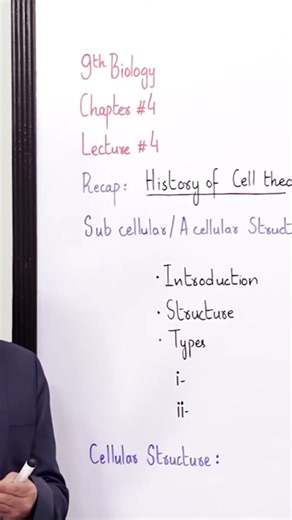 9th Biology
Chapter #4
Lecture #4
Recap: History of Cell theo
Sub cellular/A cellular Struct
· Introduction
· Structure
· Types
i-
ii-
Cellular Structure: